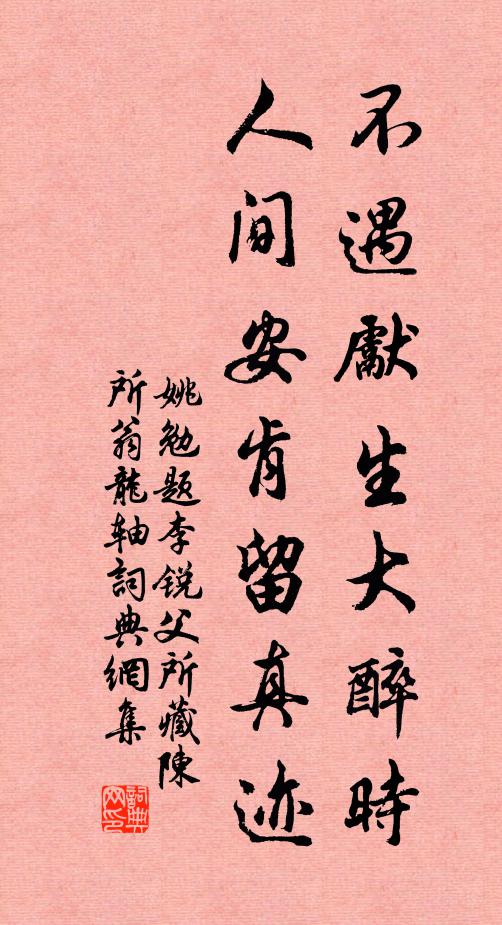 不遇獻生大醉時
人间安肯留真迹
姚勉題李锐父所藏陳
所翁龍轴詞典網集
詞典网印